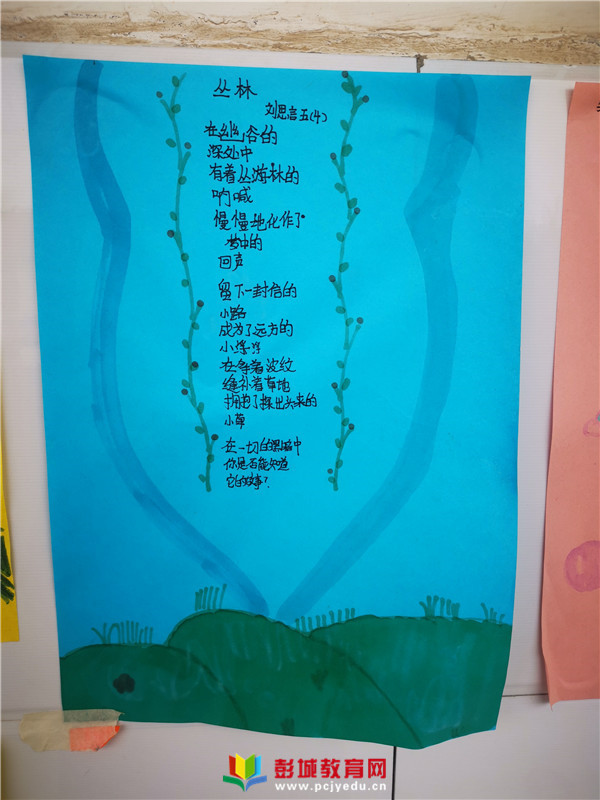 丛林
刘思言 五(4)
在幽谷的
深处中
有着丛游林的
呐喊
慢慢地化作了
梦中的
回声
留下一封信的
小路
成为了远方的
小
在等着波纹
缝补着草地
拥抱了探出头来的
小草
在一切的黑暗中
你是否能知道
它的故事?
彭城教育网
www.pcjyedu.cn